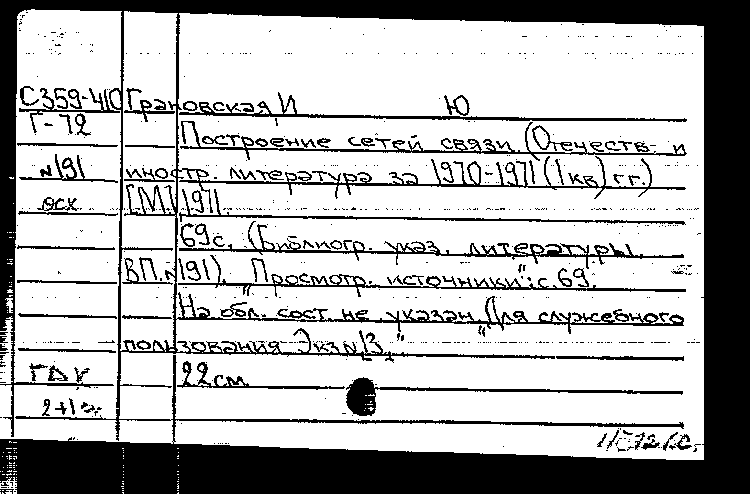 С359-410 Грановская, И Ю
Г-72 Построение сетей связи. (Отечеств. и
№191 иностр. литература за 1970-1971 (I кв) гг.)
осх [М.] 1971.
69с. (Библиогр. указ. литературы.
ВП.№191). „Просмотр. источники": с. 69.
На обл. сост. не указан. „Для служебного
пользования Экз№13."
22см
2+1